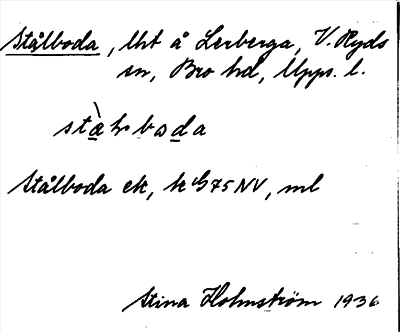 Stålboda, lht å Lerberga, V. Ryds
sn, Bro hd, Upps. l.
stàlboda
Stålboda ek, k G75NV, ml
Stina Holmström 1936